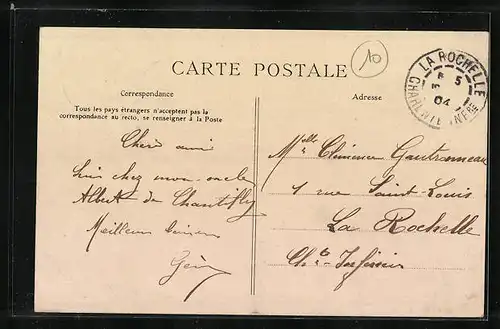 10
CARTE POSTALE
LA ROCHELLE
5
04
CHARENTE INFRE
Correspondance
Adresse
Tous les pays étrangers n'acceptent pas la
correspondance au recto, se renseigner à la Poste
Cher ami
suis chez mon oncle
Albert de Chantilly
Meilleurs
Melle Clémence
1 rue Saint-Louis
La Rochelle
Chte Inférieure